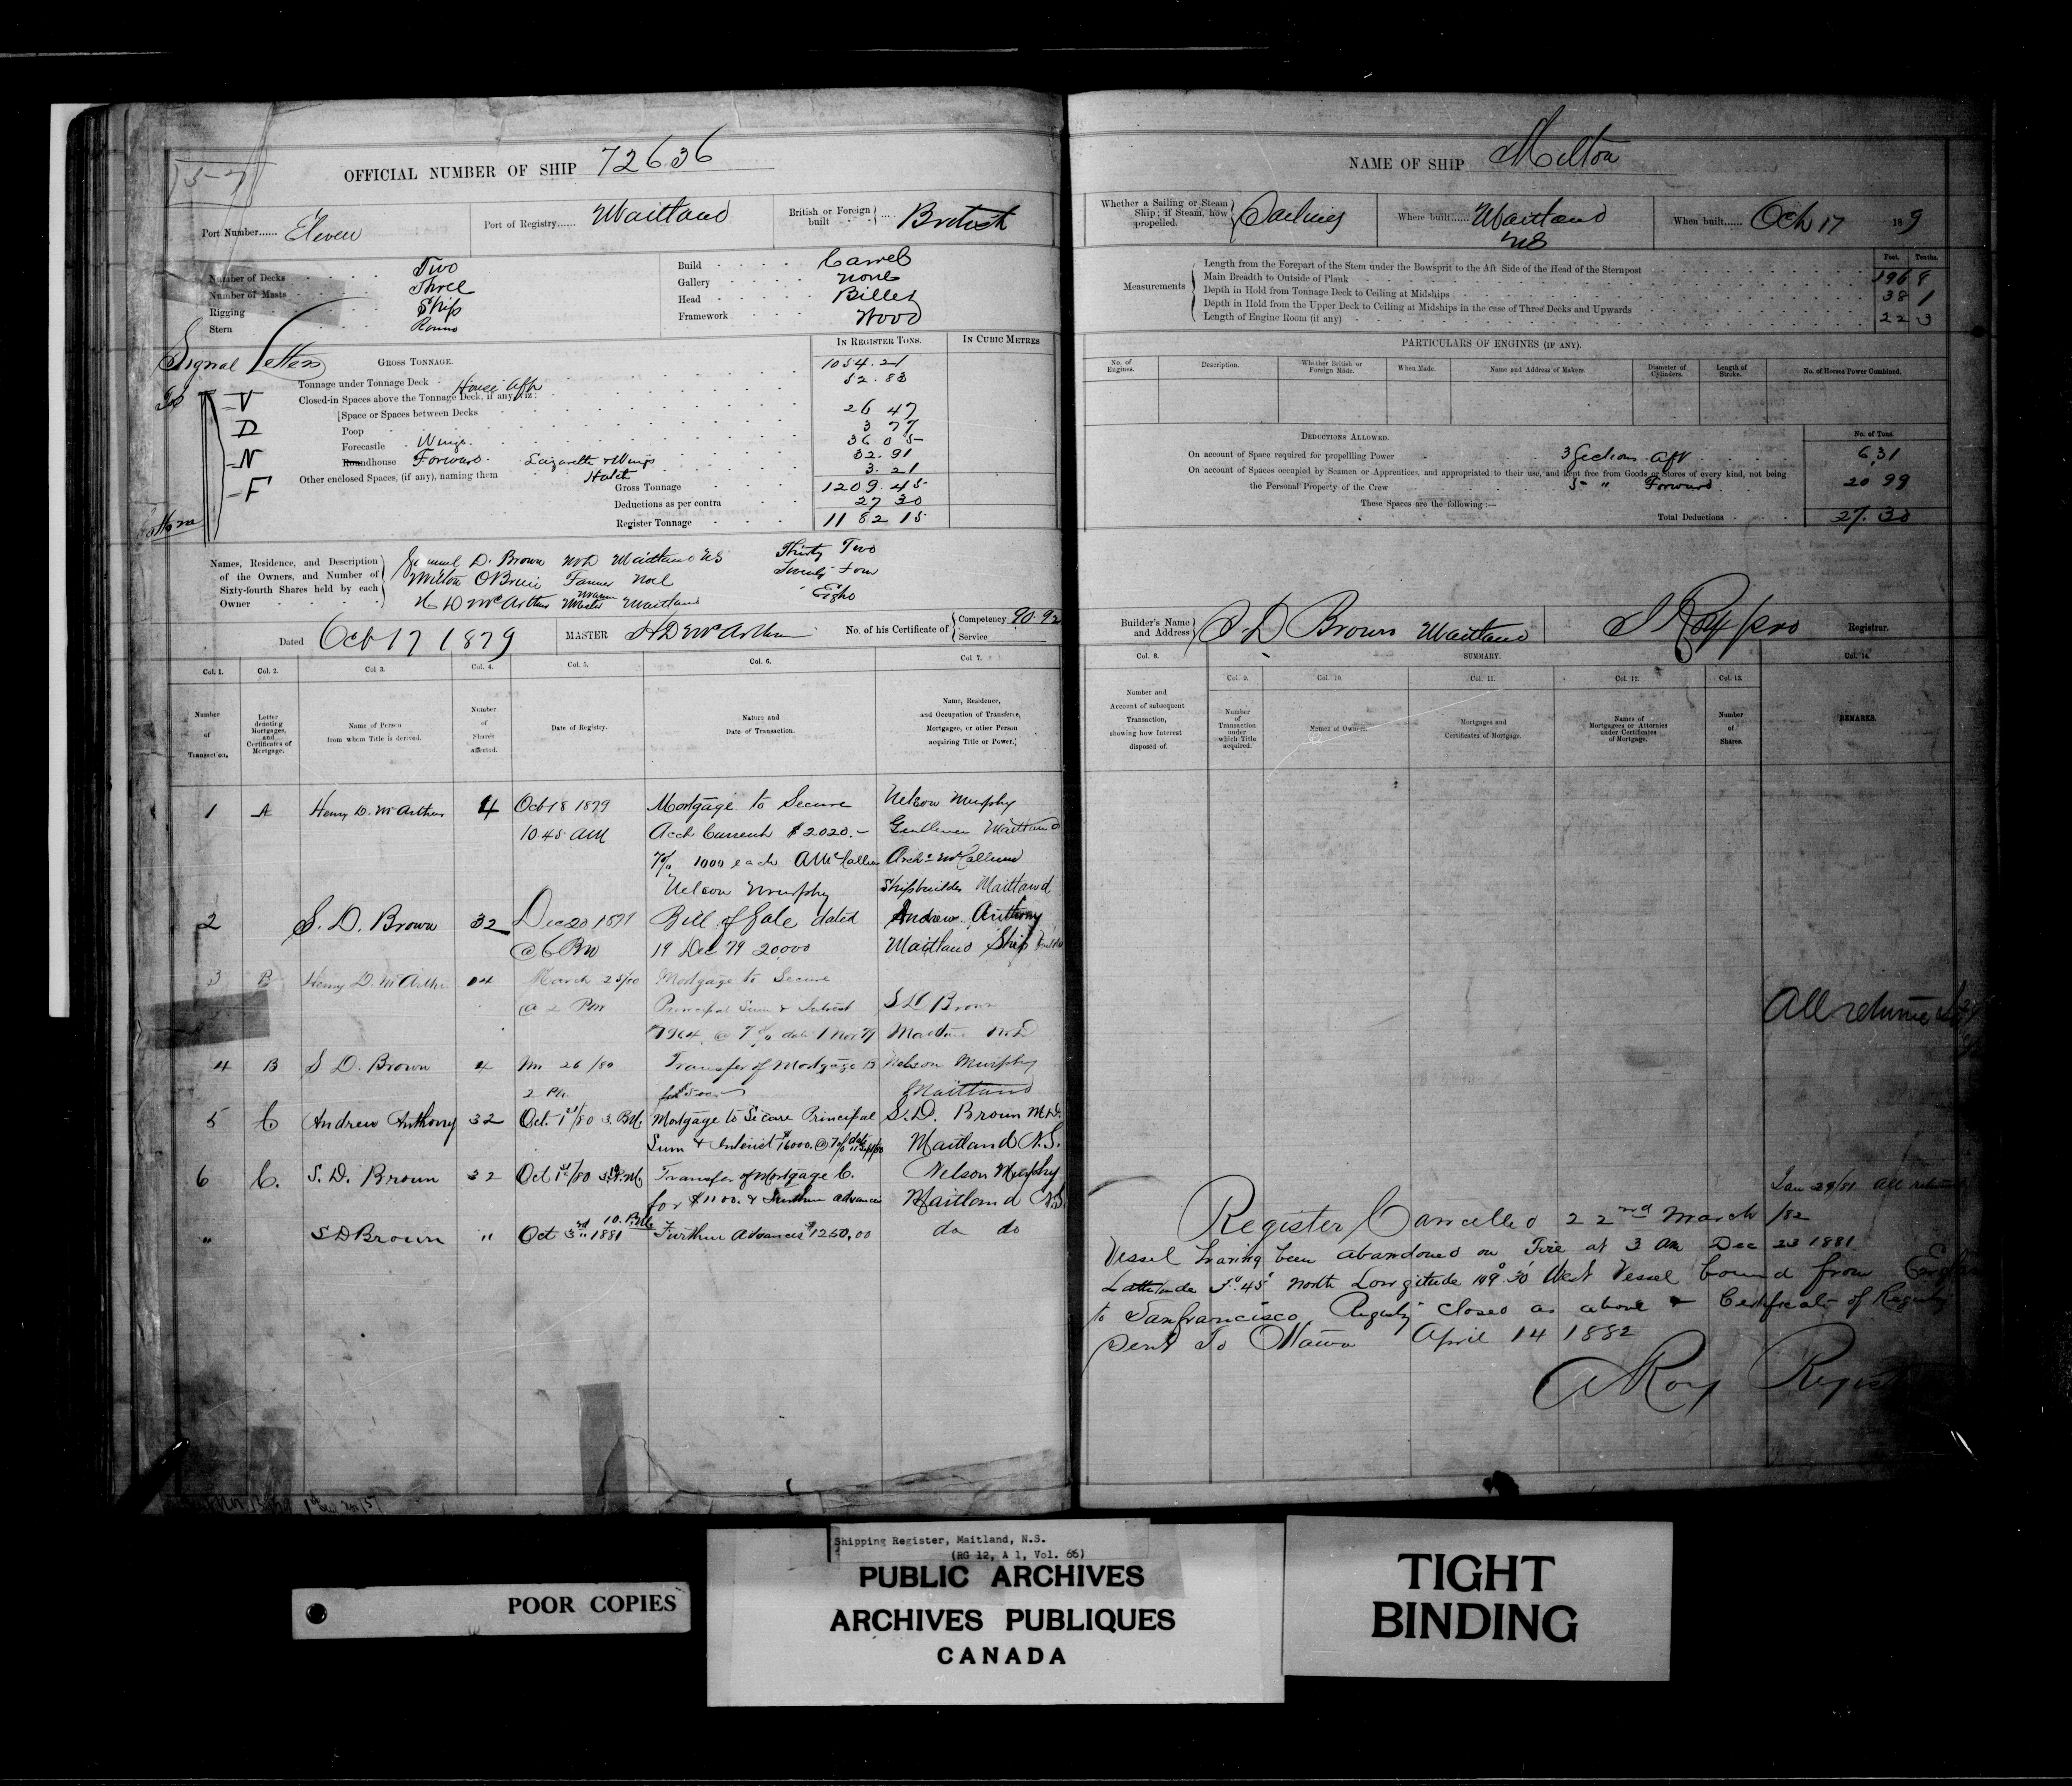 OFFICIAL NUMBER OF SHIP 72636
Port Number...... Eleven
Port of Registry...... Maitland
British or Foreign built British
Number of Decks Two
Number of Masts Three
Rigging Ship
Stern Round
Build Carvel
Gallery None
Head Billet
Framework Wood
Signal Letters
V
D
N
F
GROSS TONNAGE.
IN REGISTER TONS.
IN CUBIC METRES
Tonnage under Tonnage Deck 1054.21
House Aff 52.83
Closed-in Spaces above the Tonnage Deck, if any, viz:
Space or Spaces between Decks 26 47
Poop 3 77
Forecastle Wings 36.05
Roundhouse Forward Lazarette & Wings 32.91
Other enclosed Spaces, (if any), naming them Hatch 3.21
Gross Tonnage 1209.45
Deductions as per contra 27 30
Register Tonnage 1182 15
Names, Residence, and Description of the Owners, and Number of Sixty-fourth Shares held by each Owner
Samuel D. Brown MD Maitland NS Thirty Two
Milton OBrien Farmer Noel Twenty four
H D McArthur Master Mariner Maitland Eight
Dated Oct 17 1879
MASTER H D McArthur
No. of his Certificate of Competency 90.92
Service
Col. 1. Col. 2. Col 3. Col. 4. Col. 5. Col. 6. Col 7.
Number of Transaction.
Letter denoting Mortgages, and Certificates of Mortgage.
Name of Person from whom Title is derived.
Number of Shares affected.
Date of Registry.
Nature and Date of Transaction.
Name, Residence, and Occupation of Transferee, Mortgagee, or other Person acquiring Title or Power.
1 A Henry D. McArthur 4 Oct 18 1879 Mortgage to Secure Nelson Murphy
10.45 AM Acct Current $2020.- Gentleman Maitland
7% 1000 each A McCallum Archd McCallum
Nelson Murphy Shipbuilder Maitland
2 S. D. Brown 32 Dec 20 1879 Bill of Sale dated Andrew Anthony
@ 6 PM 19 Dec 79 20000 Maitland Ship Builder
3 B Henry D. McArthur 04 March 25/80 Mortgage to Secure
@ 2 PM Principal Sum & Interest S D Brown
1964 @ 7% date 1 Nov 79 Maitland M.D
4 B S D. Brown 4 Mr 26/80 Transfer of Mortgage B Nelson Murphy
2 PM Maitland
5 C Andrew Anthony 32 Oct. 1st/80 3. P.M. Mortgage to Secure Principal S. D. Brown M.D.
Sum & Interest $6000. @ 7% Maitland N.S.
6 C. S. D. Brown 32 Oct 1st/80 Transfer of Mortgage C. Nelson Murphy
for $1100. & Further advances Maitland N.S.
" S D Brown " Oct 3rd 1881 Further Advances $1250.00 do do
NAME OF SHIP Milton
Whether a Sailing or Steam Ship; if Steam, how propelled. Sailing
Where built...... Maitland NS
When built...... Oct 17 1879
Measurements
Feet. Tenths.
Length from the Forepart of the Stem under the Bowsprit to the Aft Side of the Head of the Sternpost 196 9
Main Breadth to Outside of Plank 38 1
Depth in Hold from Tonnage Deck to Ceiling at Midships 22 3
Depth in Hold from the Upper Deck to Ceiling at Midships in the case of Three Decks and Upwards
Length of Engine Room (if any)
PARTICULARS OF ENGINES (IF ANY).
No. of Engines.
Description.
Whether British or Foreign Made.
When Made.
Name and Address of Makers.
Diameter of Cylinders.
Length of Stroke.
No. of Horses Power Combined.
DEDUCTIONS ALLOWED.
No. of Tons.
On account of Space required for propelling Power 3 Sections Aft 6.31
On account of Spaces occupied by Seamen or Apprentices, and appropriated to their use, and kept free from Goods or Stores of every kind, not being
the Personal Property of the Crew 5 " Forward 20 99
These Spaces are the following:—
Total Deductions 27.30
Builder's Name and Address S. D Brown Maitland
Registrar.
Col. 8. SUMMARY. Col. 14.
Col. 9. Col. 10. Col. 11. Col. 12. Col. 13.
Number and Account of subsequent Transaction, showing how Interest disposed of.
Number of Transaction under which Title acquired.
Names of Owners.
Mortgages and Certificates of Mortgage.
Names of Mortgagees or Attornies under Certificates of Mortgage.
Number of Shares.
REMARKS.
All returned
Jan 29/81 All returned
Register Cancelled 22nd March /82
Vessel having been abandoned on Fire at 3 am Dec 23 1881
North Longitude 109° 30' West Vessel bound from
to Sanfrancisco Registry closed as above & Certificate of Registry
Sent To Ottawa April 14 1882
A Roy Regist
Shipping Register, Maitland, N.S.
(RG 12, A 1, Vol. 66)
POOR COPIES
PUBLIC ARCHIVES
ARCHIVES PUBLIQUES
CANADA
TIGHT
BINDING